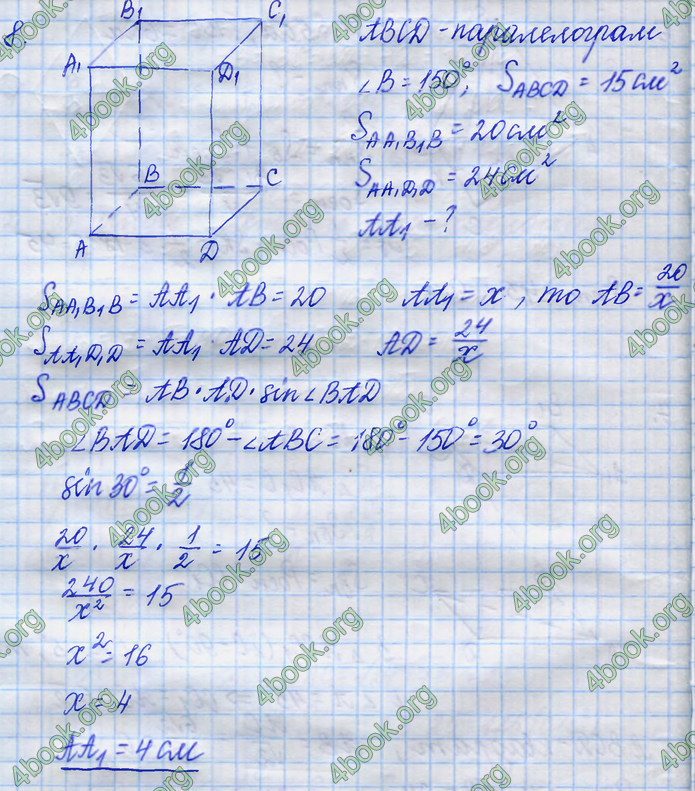 8.
B₁ C₁
A₁ D₁
B C
A D
ABCD - паралелограм
∠B = 150°; S_ABCD = 15 см²
S_AA₁B₁B = 20 см²
S_AA₁D₁D = 24 см²
AA₁ - ?
S_AA₁B₁B = AA₁ · AB = 20 AA₁ = x, то AB = 20/x
S_AA₁D₁D = AA₁ · AD = 24 AD = 24/x
S_ABCD = AB · AD · sin∠BAD
∠BAD = 180° - ∠ABC = 180° - 150° = 30°
sin 30° = 1/2
20/x · 24/x · 1/2 = 15
240/x² = 15
x² = 16
x = 4
AA₁ = 4 см
4book.org